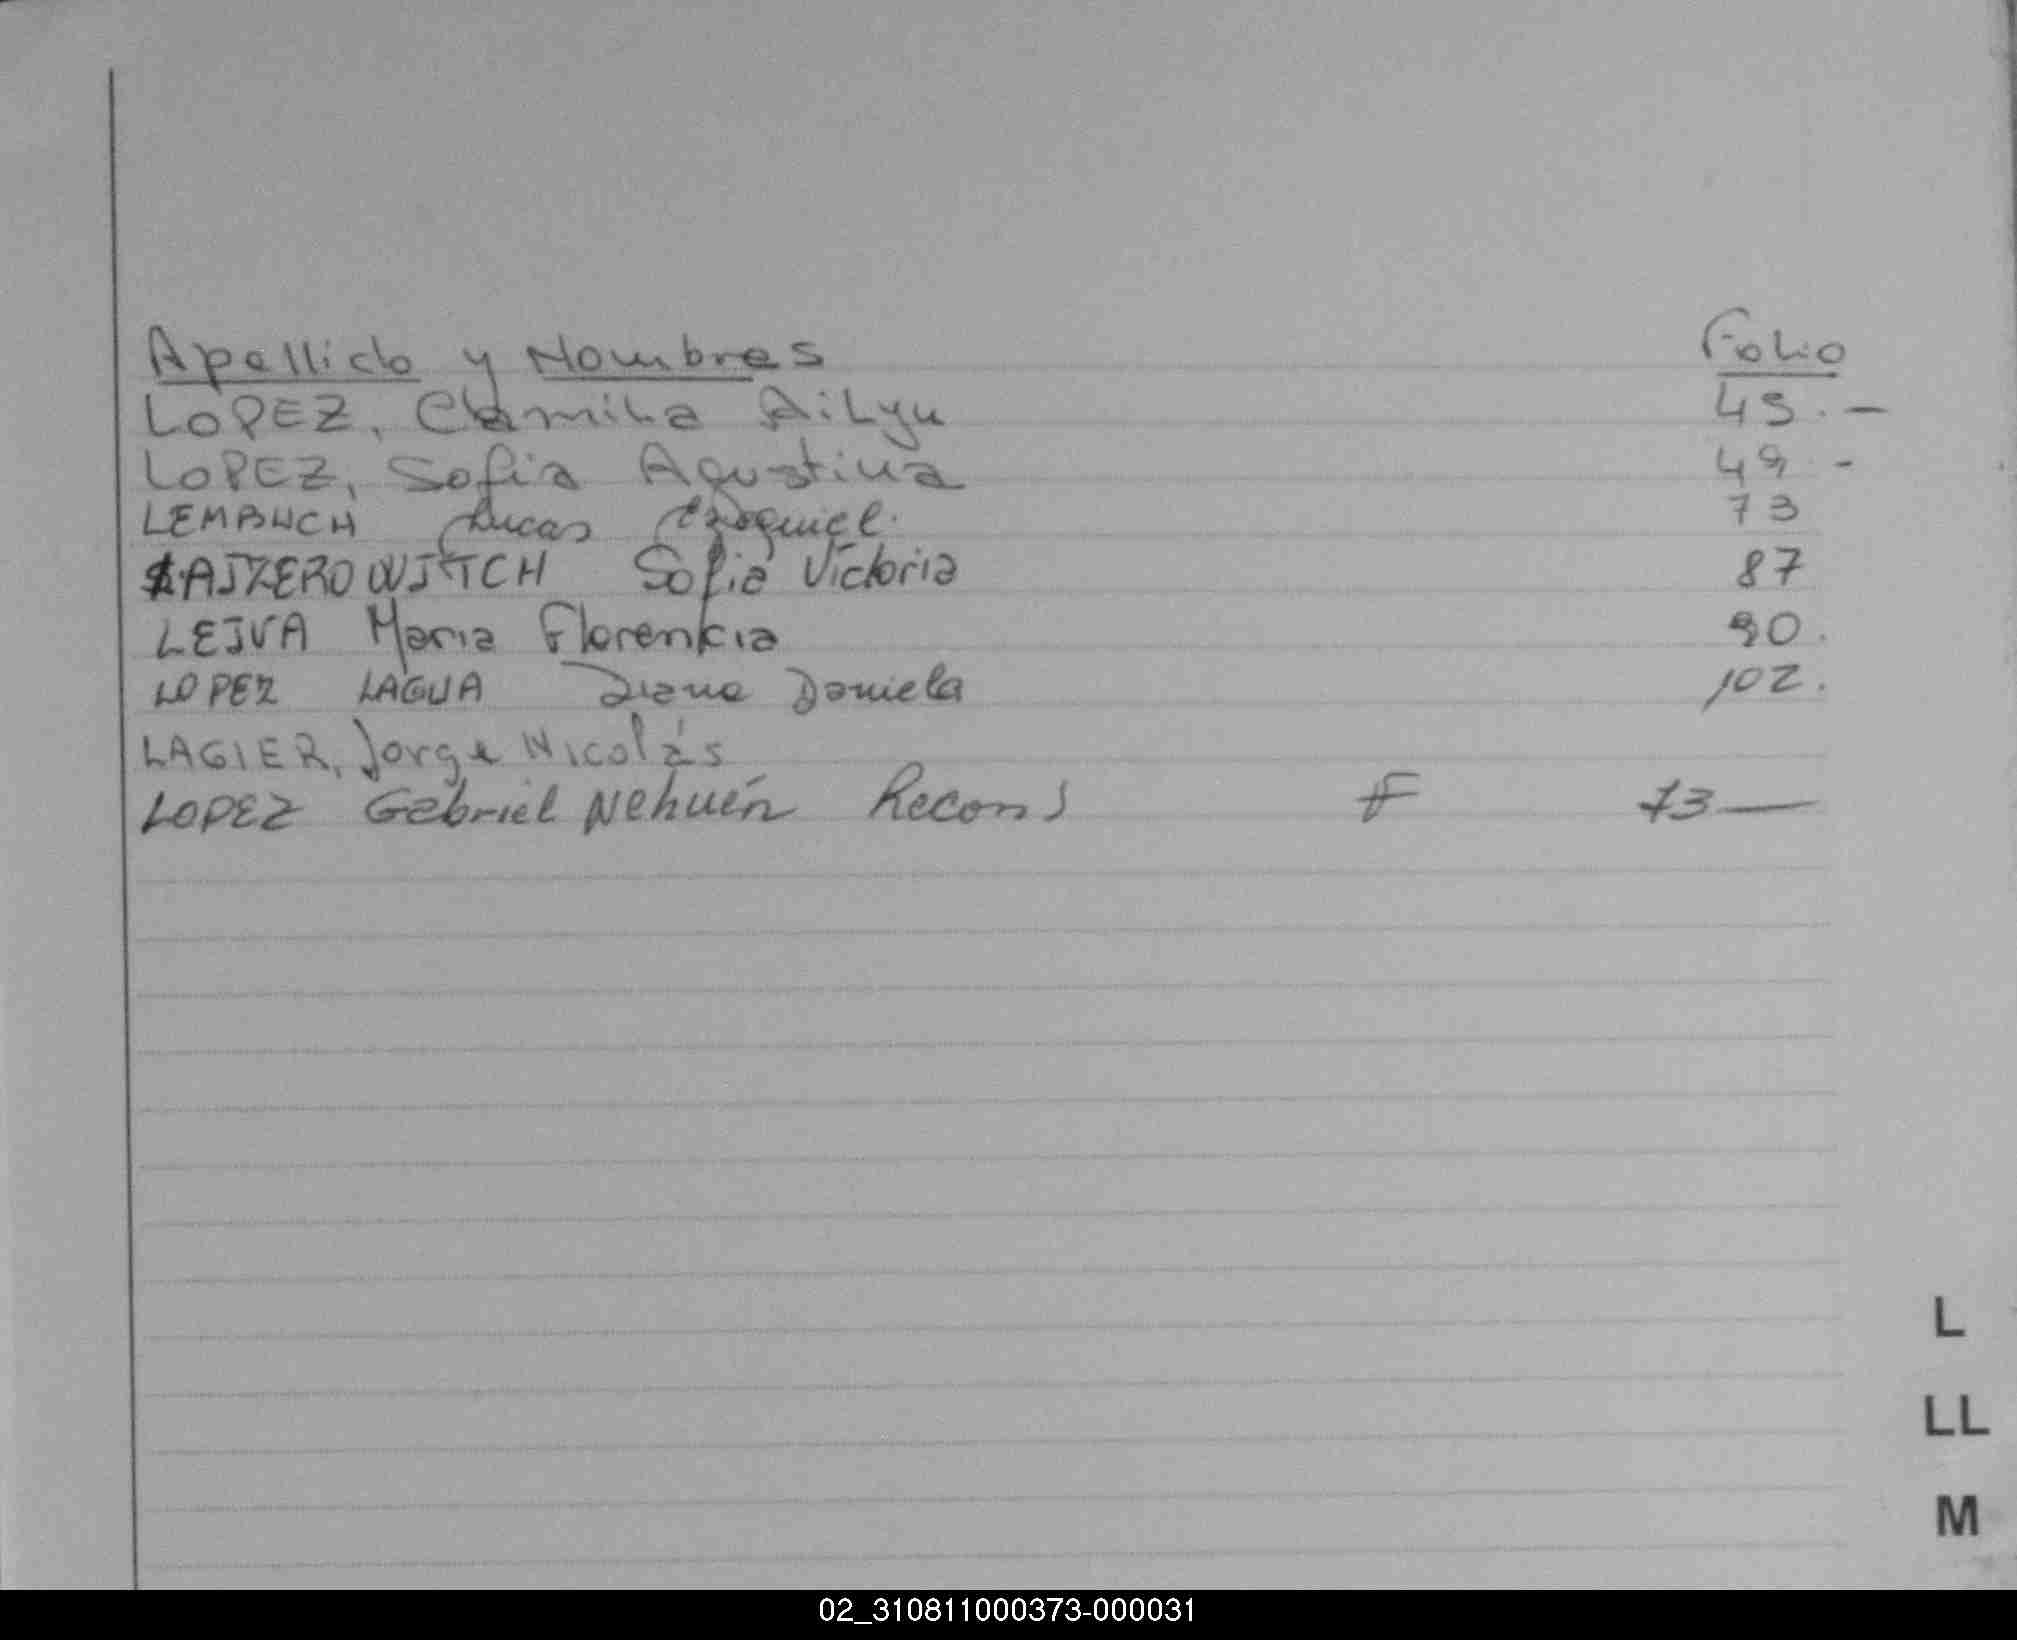 Apellido y Nombres Folio
LOPEZ, Camila Ailyu 45.-
LOPEZ, Sofia Agustina 49 -
LEMBUCH Lucas Ezequiel. 73
LAJZEROWITCH Sofia Victoria 87
LEIVA Maria Florencia 90.
LOPEZ LAGUA Diana Daniela 102.
LAGIER, Jorge Nicolás
LOPEZ Gabriel Nehuén Recons F 73—
L
LL
M
02_310811000373-000031